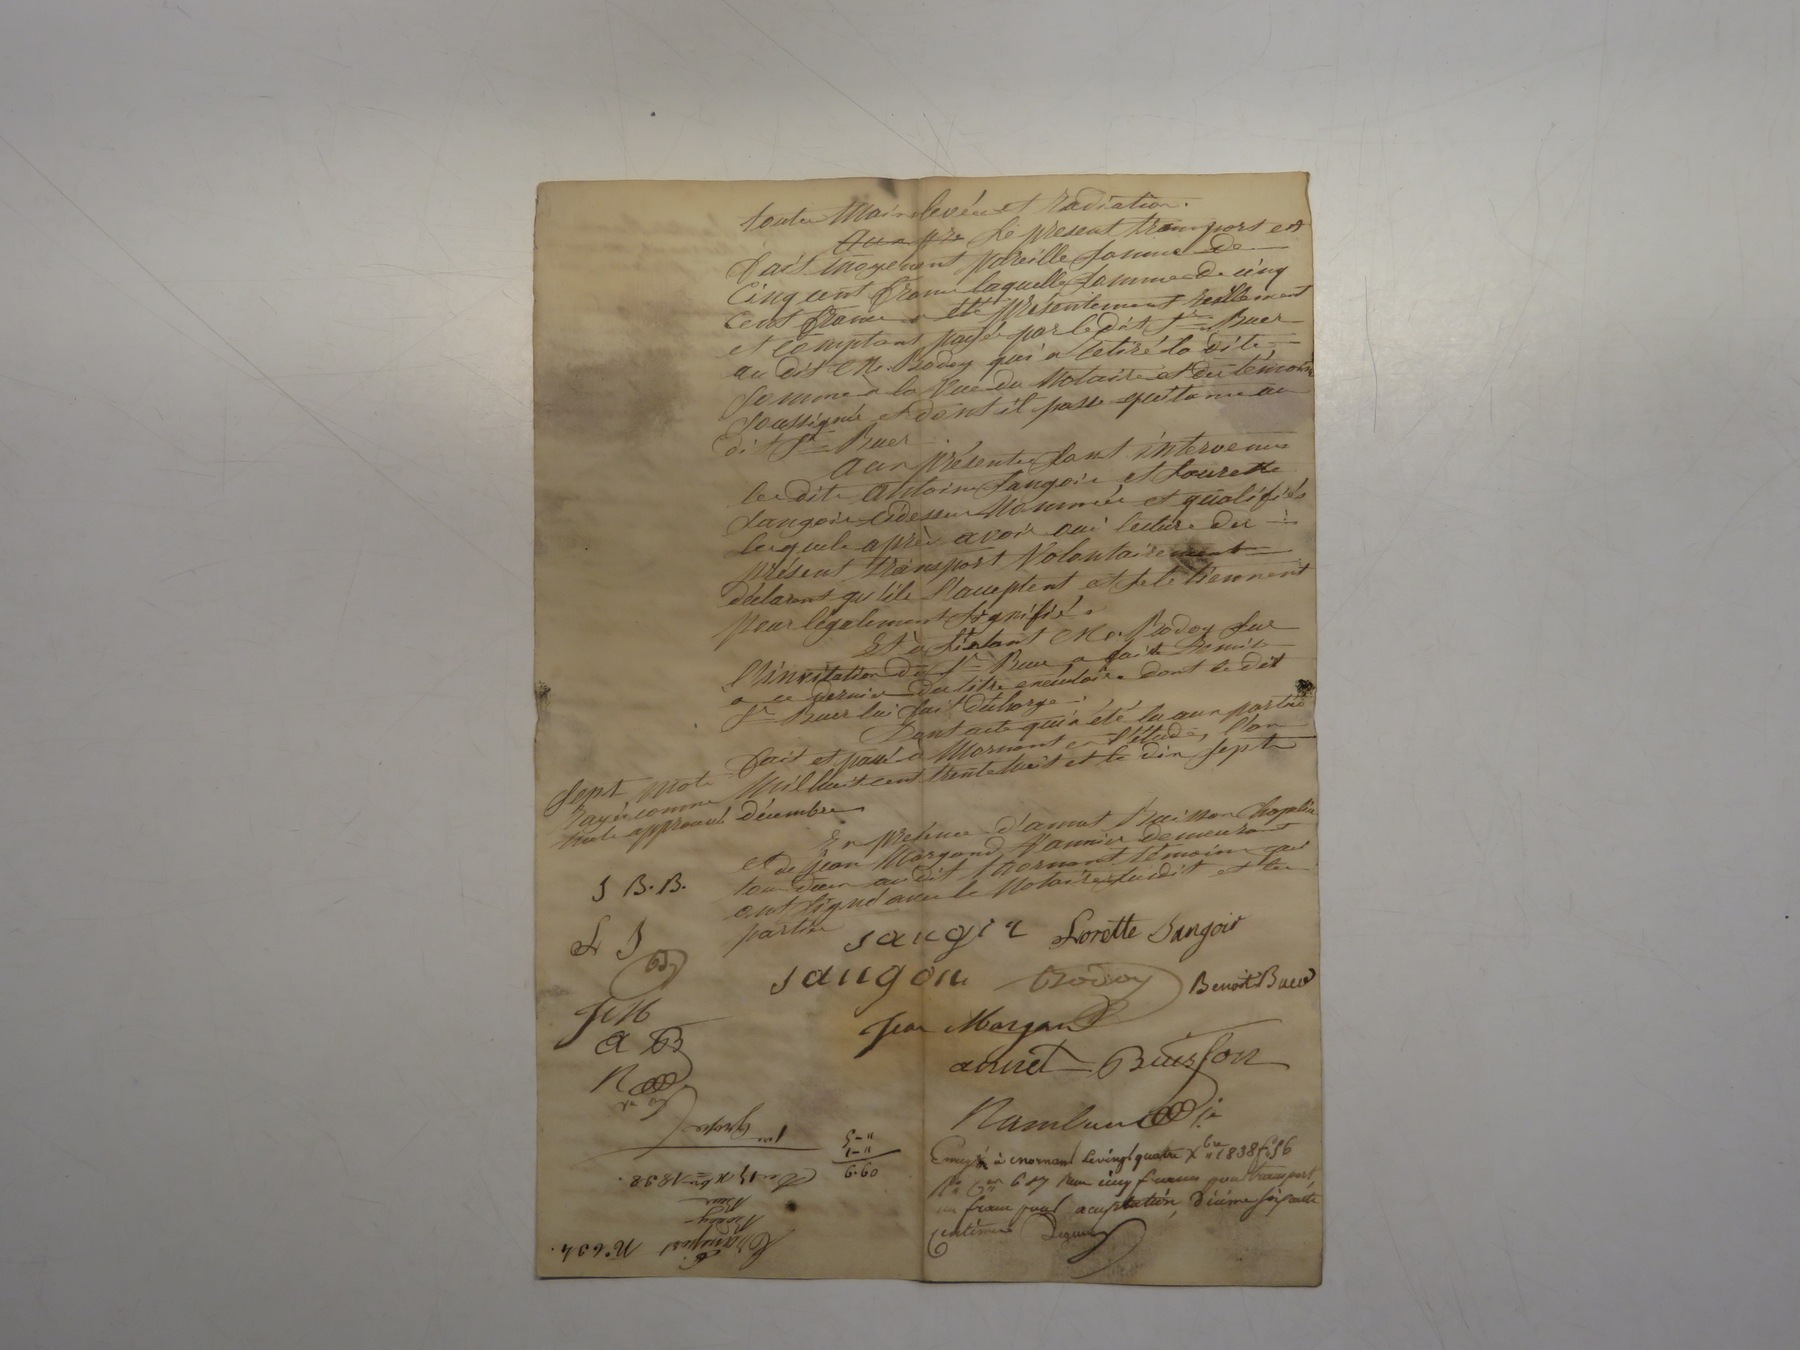 toutes Mainlevée et radiation.
Le present transport est
fait moyenant pareille somme de
cinq cent francs laquelle somme de cinq
cent francs a été présentement réellement
et comptant payée par le dit Sr Buer
au dit Me. Brodoy qui a retiré la dite
somme a la Vue du Notaire et des témoins
soussignés et dont il passe quitance au
dit Sr Buer
Aux présentes sont intervenus
les dits Antoine Jangoir et Laurette
Jangoir cidessus Nommés et qualifiés
lesquels après avoir oui lecture du
présent transport Volontairement
déclarent qu'ils l'acceptent et se le tiennent
pour légalement signifié.
Et à l'istant Me. Brodoy sur
l'invitation du Sr Buer a fait remise
a ce dernier du titre exécutoire dont le dit
Sr Buer lui fait décharge.
Dont acte qui a été lu aux parties
fait et passé a Mornant en l'étude, l'an
Mil huit cent trente huit et le dix sept
décembre
Sept mots
rayés comme
nuls approuvé
En présence d'annet Buisson Chapelier
et de Jean Morgand Vannier demeurant
tous deux au dit Mornant témoins qui
ont signé avec le Notaire susdit et les
parties
J B.B.
L J
J M
a B
Jangoir Lorette Jangoir
Jangoir Brodoy Benoit Buer
Jean Morgand
annet Buisson
Enregt à mornant le vingt quatre Xbre 1838 fo 56
Ro Ce 6 et 7 Reçu cinq francs pour transport,
un franc pour acceptation, Dixième soixante
centimes
"-5
"-1
0.60
6.60
1re Grosse
Du 17 Xbre 1838.
Transport
Brodoy
Buer
No 634.